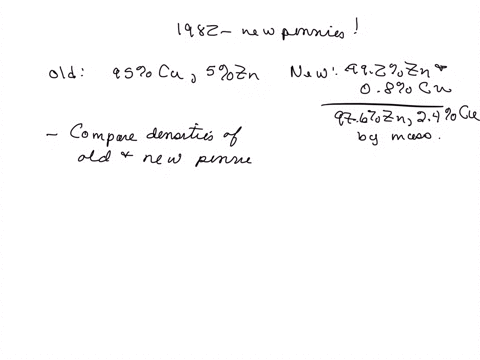 1982 - new pennies!
old: 95% Cu, 5% Zn
New: 99.2% Zn +
0.8% Cu
97.6% Zn, 2.4% Cu
by mass.
- Compare densities of
old + new pennie